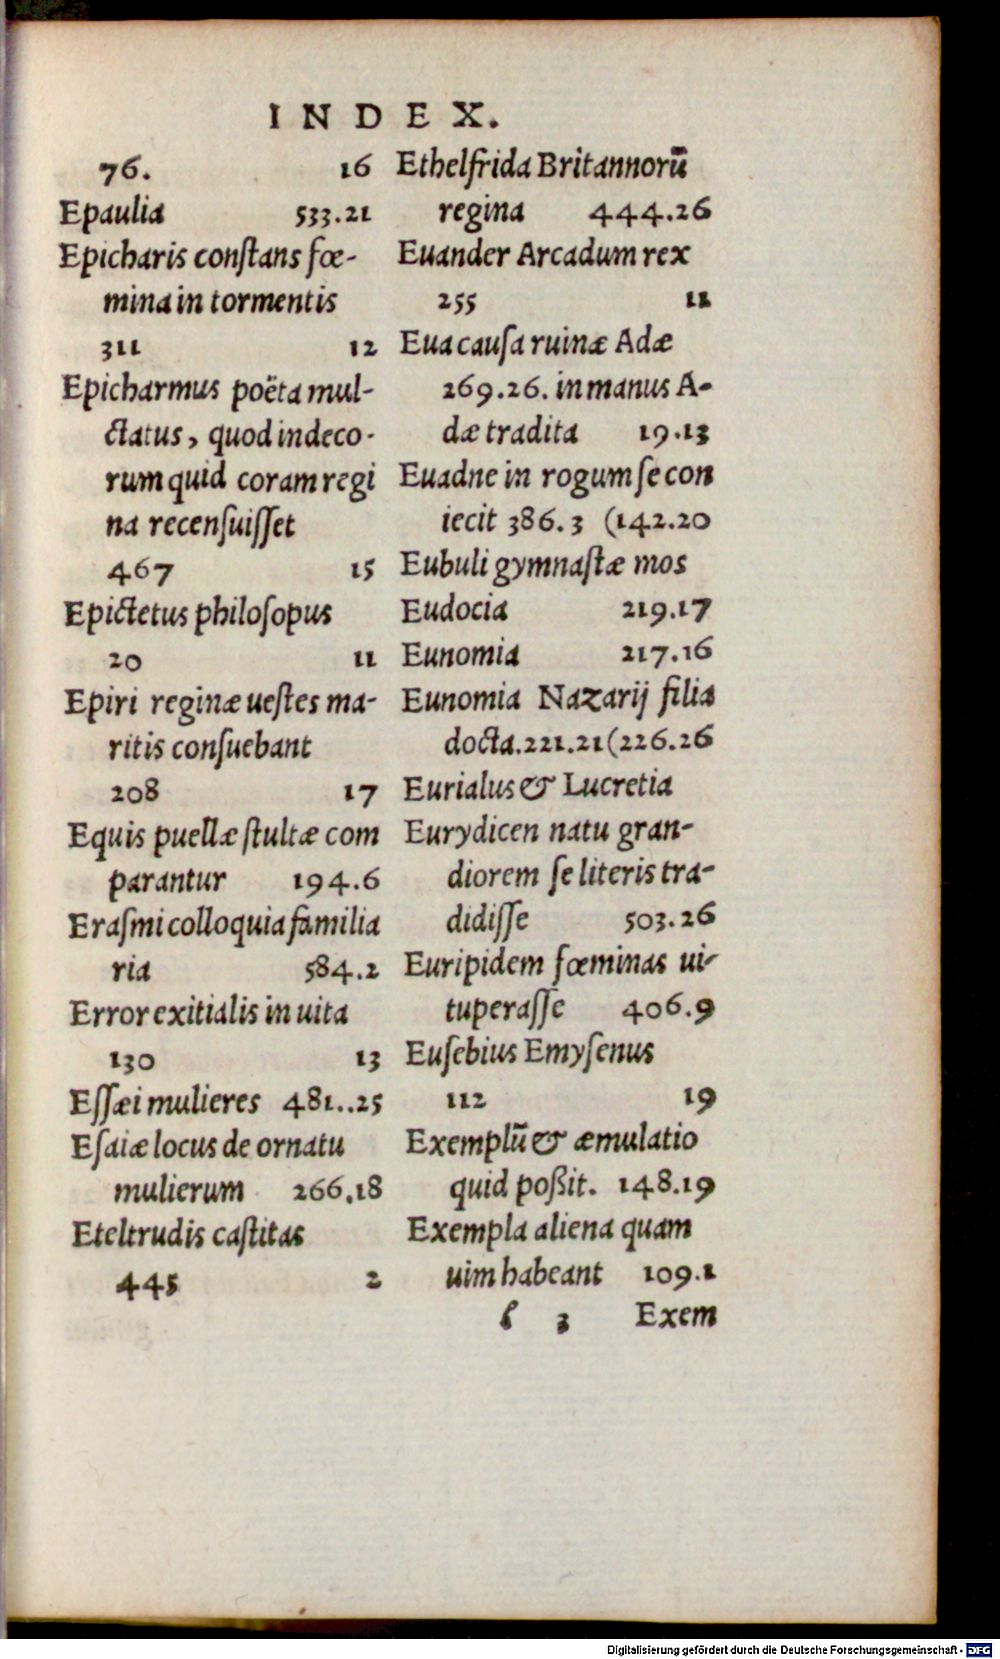 INDEX.
76. 16
Epaulia 533.21
Epicharis conſtans fœ-
mina in tormentis
311 12
Epicharmus poëta mul-
ctatus, quod indeco-
rum quid coram regi
na recenſuiſſet
467 15
Epictetus philoſopus
20 11
Epiri reginæ ueſtes ma-
ritis conſuebant
208 17
Equis puellæ ſtultæ com
parantur 194.6
Eraſmi colloquia familia
ria 584.2
Error exitialis in uita
130 13
Eſſæi mulieres 481..25
Eſaiæ locus de ornatu
mulierum 266.18
Eteltrudis caſtitas
445 2
Ethelfrida Britannorū
regina 444.26
Euander Arcadum rex
255 11
Eua cauſa ruinæ Adæ
269.26. in manus A-
dæ tradita 19.13
Euadne in rogum ſe con
iecit 386.3 (142.20
Eubuli gymnaſtæ mos
Eudocia 219.17
Eunomia 217.16
Eunomia Nazarij filia
docta.221.21(226.26
Eurialus & Lucretia
Eurydicen natu gran-
diorem ſe literis tra-
didiſſe 503.26
Euripidem fœminas ui-
tuperaſſe 406.9
Euſebius Emyſenus
112 19
Exemplū & æmulatio
quid poßit. 148.19
Exempla aliena quam
uim habeant 109.1
3 Exem
Digitalisierung gefördert durch die Deutsche Forschungsgemeinschaft - DFG